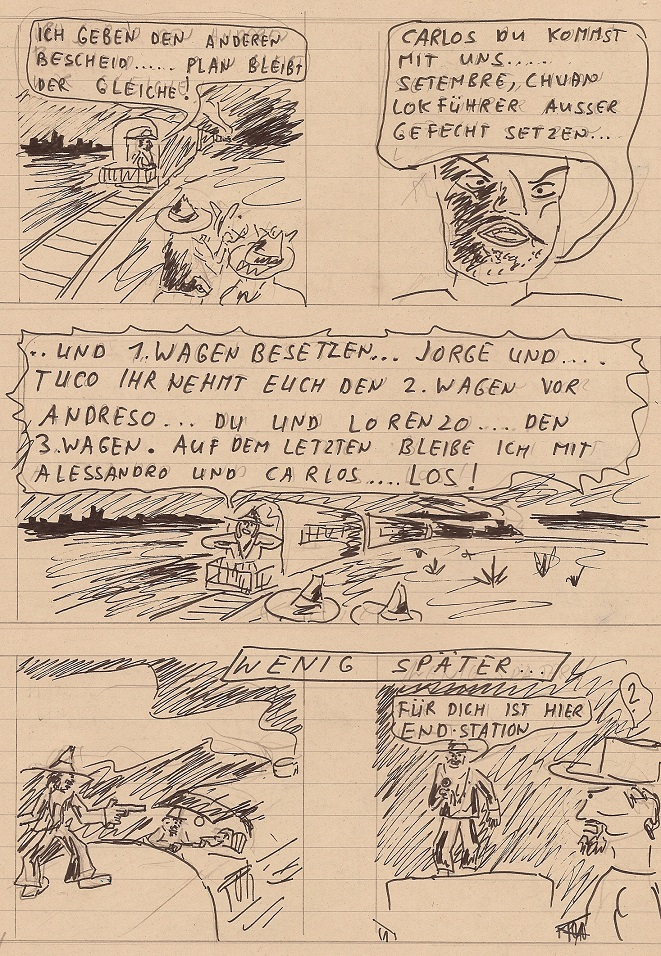 ICH GEBEN DEN ANDEREN
BESCHEID..... PLAN BLEIBT
DER GLEICHE!
CARLOS DU KOMMST
MIT UNS.....
SETEMBRE, CHUAN
LOKFÜHRER AUSSER
GEFECHT SETZEN...
.. UND 1. WAGEN BESETZEN... JORGE UND....
TUCO IHR NEHMT EUCH DEN 2. WAGEN VOR
ANDRESO... DU UND LORENZO.... DEN
3. WAGEN. AUF DEM LETZTEN BLEIBE ICH MIT
ALESSANDRO UND CARLOS.... LOS!
WENIG SPÄTER...
FÜR DICH IST HIER
END-STATION
?